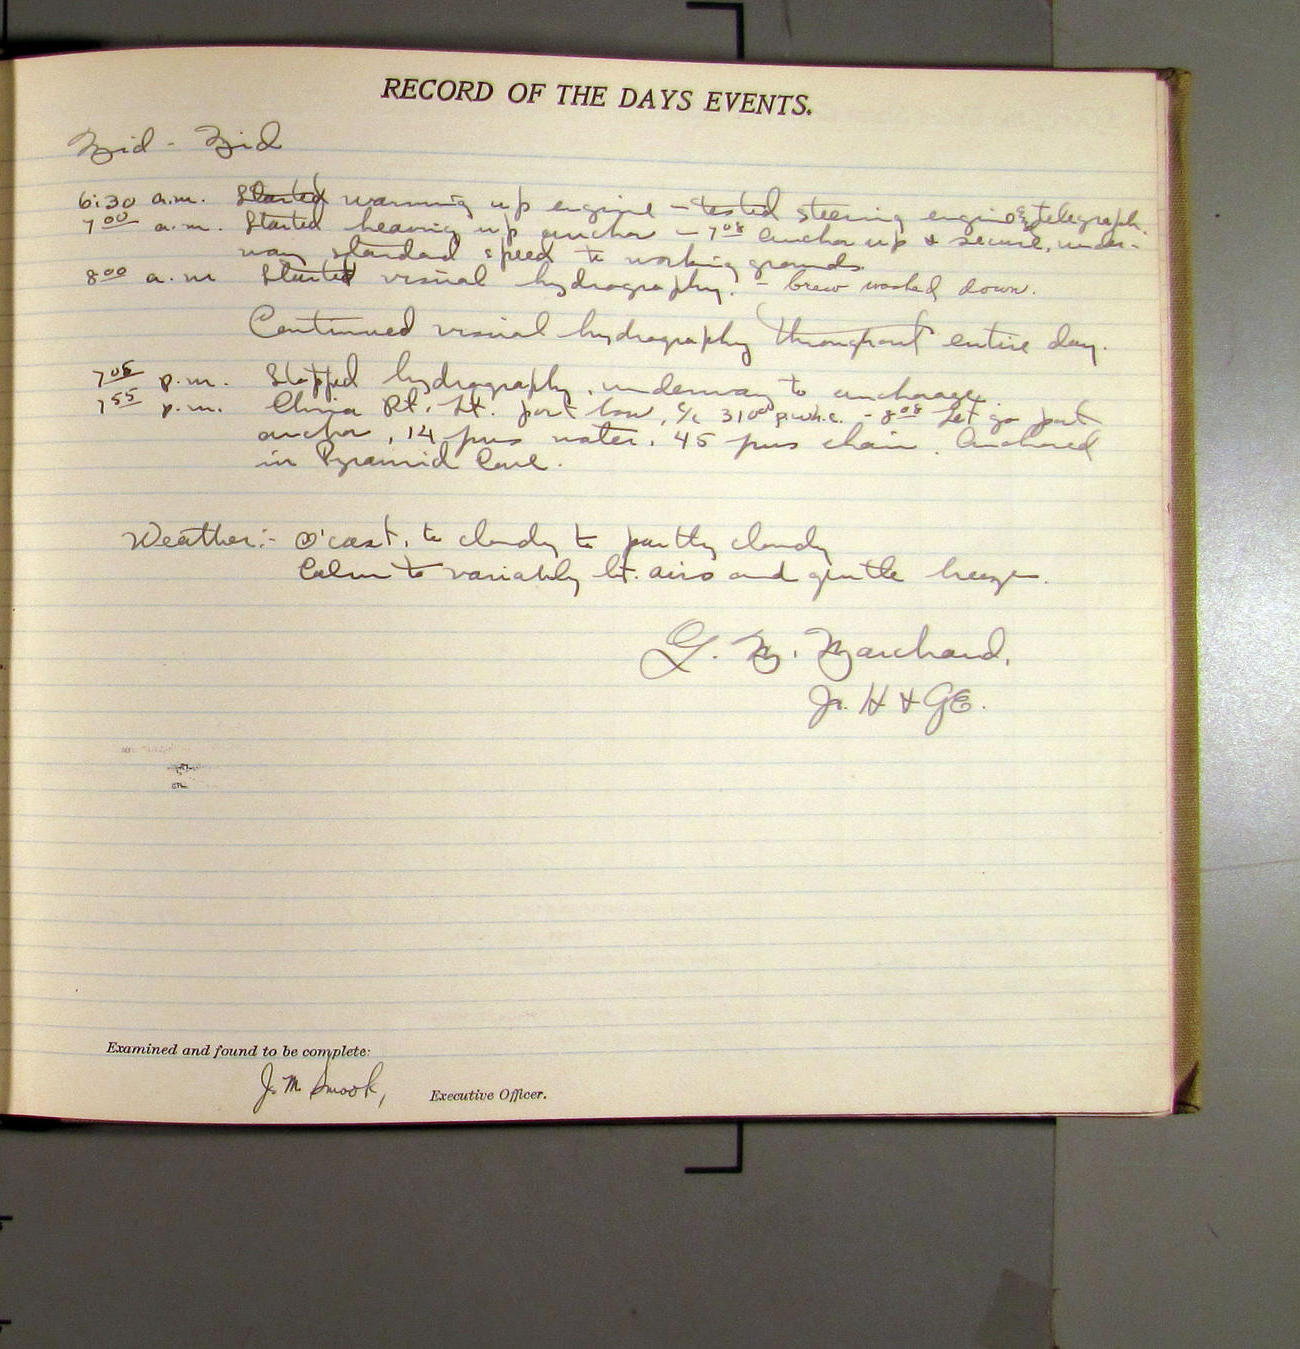 RECORD OF THE DAYS EVENTS.
Mid - Mid
6:30 a.m. Started warming up engine - tested steering engine & telegraph.
7 00 a.m. Started heaving up anchor - 7 08 anchor up & secure, under-
way standard speed to working grounds.
8 00 a.m Started visual hydrography. - Crew washed down.
Continued visual hydrography throughout entire day.
7 05 p.m. Stopped hydrography, underway to anchorage.
7 55 p.m. Pt. Lt. port bow, c/c 310 p.w.h.c. - 8 08 Let go port
anchor, 14 fms water, 45 fms chain. Anchored
in Pyramid Cove.
Weather:- O'cast, to cloudy to partly cloudy
Calm to variably lt. airs and gentle breeze.
G. M. Marchand,
Jr. H & GE.
Examined and found to be complete:
J. M. Smook,
Executive Officer.